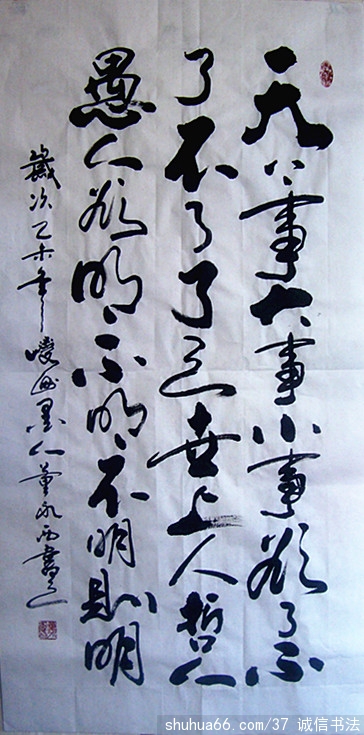 天下事大事小事欲了不
了不了了之世上人哲人
愚人欲明不明不明則明
歲次乙未年墨人董永西書
shuhua66.com/37 诚信书法